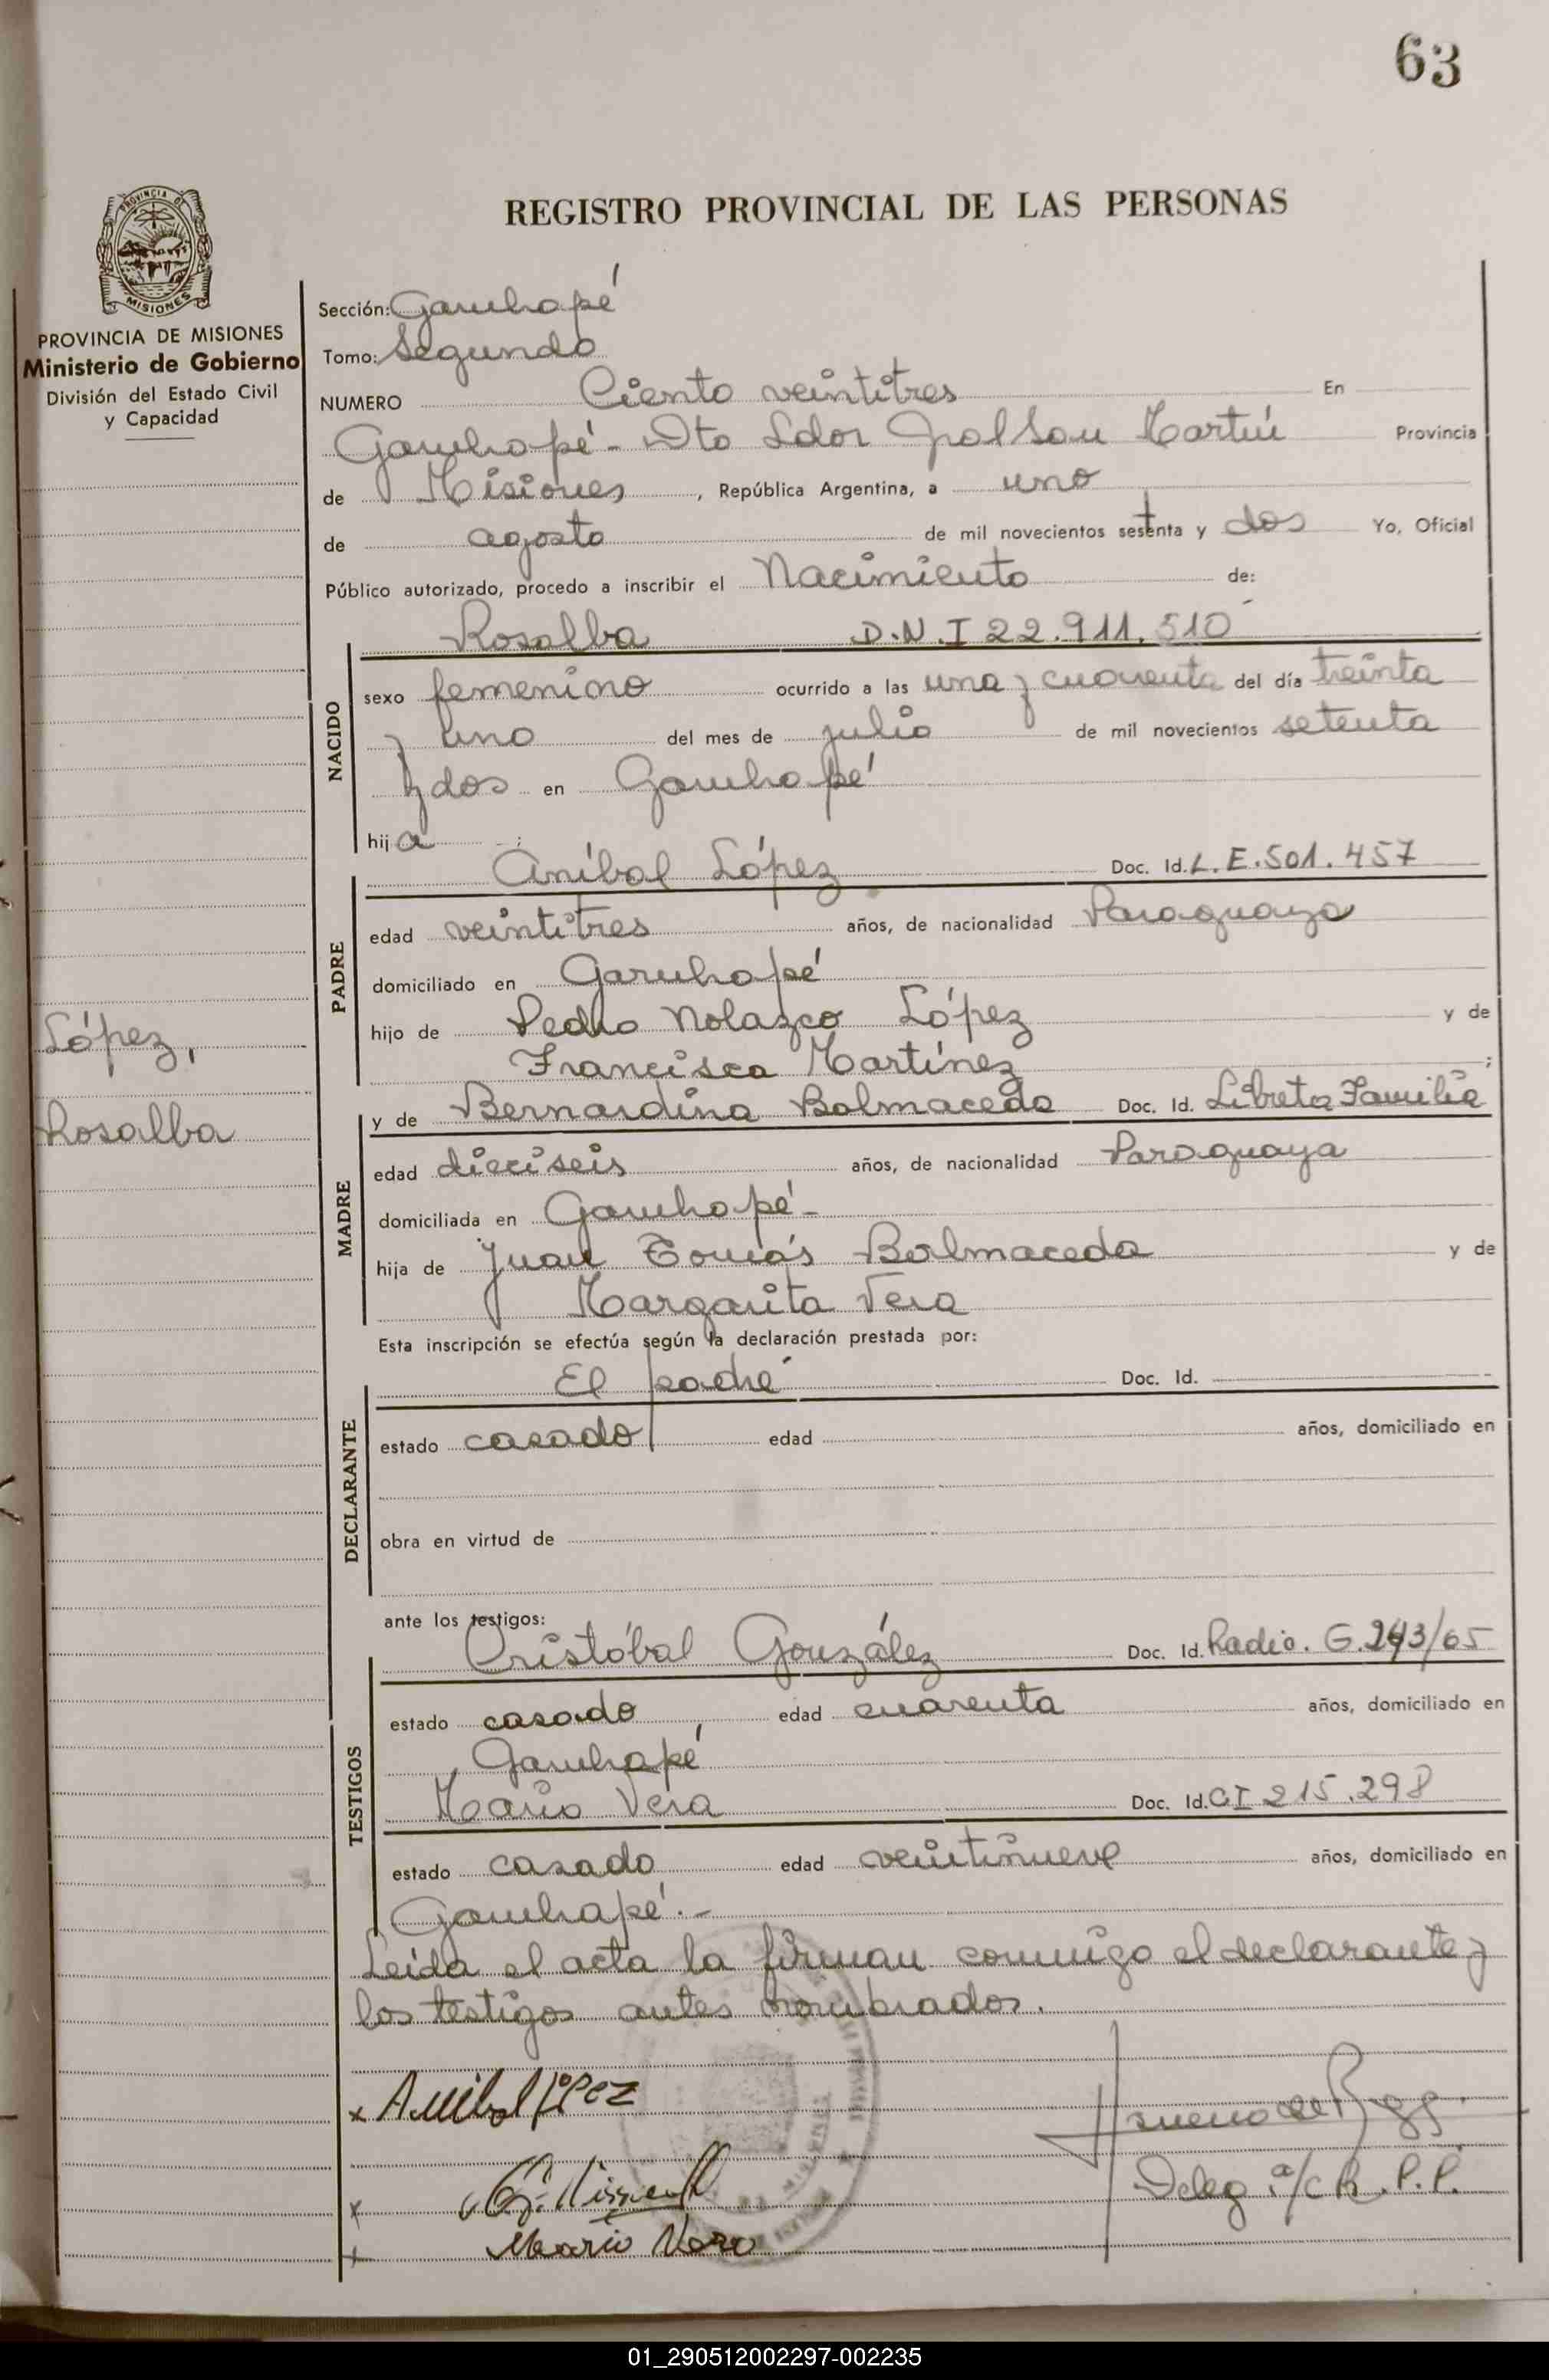 63
REGISTRO PROVINCIAL DE LAS PERSONAS
PROVINCIA DE MISIONES
Ministerio de Gobierno
División del Estado Civil
y Capacidad
López,
Rosalba
Sección: Garuhapé
Tomo: Segundo
NUMERO Ciento veintitres En
Garuhapé - Dto Ldor Gral San Martín Provincia
de Misiones, República Argentina, a uno
de agosto de mil novecientos setenta y dos Yo, Oficial
Público autorizado, procedo a inscribir el Nacimiento de:
Rosalba D.N.I 22.911.510
NACIDO
sexo femenino ocurrido a las una y cuarenta del día treinta
y uno del mes de julio de mil novecientos setenta
y dos en Garuhapé
hija :
Aníbal López Doc. Id. L.E. 501.457
PADRE
edad veintitres años, de nacionalidad Paraguaya
domiciliado en Garuhapé
hijo de Pedro Nolazco López y de
Francisca Martínez ;
y de Bernardina Balmaceda Doc. Id. Libreta Familia
MADRE
edad dieciseis años, de nacionalidad Paraguaya
domiciliada en Garuhapé -
hija de Juan Tomás Balmaceda y de
Margarita Vera
Esta inscripción se efectúa según la declaración prestada por:
El padre Doc. Id.
DECLARANTE
estado casado edad años, domiciliado en
obra en virtud de
ante los testigos:
Cristóbal González Doc. Id. Radic. G. 243/65
TESTIGOS
estado casado edad cuarenta años, domiciliado en
Garuhapé
Mario Vera Doc. Id. CI 215.298
estado casado edad veintinueve años, domiciliado en
Garuhapé.-
Leída el acta la firman conmigo el declarante y
los testigos antes nombrados.
x Anibal López
x
x Mario Vera
Deleg. a/c R.P.P.
01_290512002297-002235